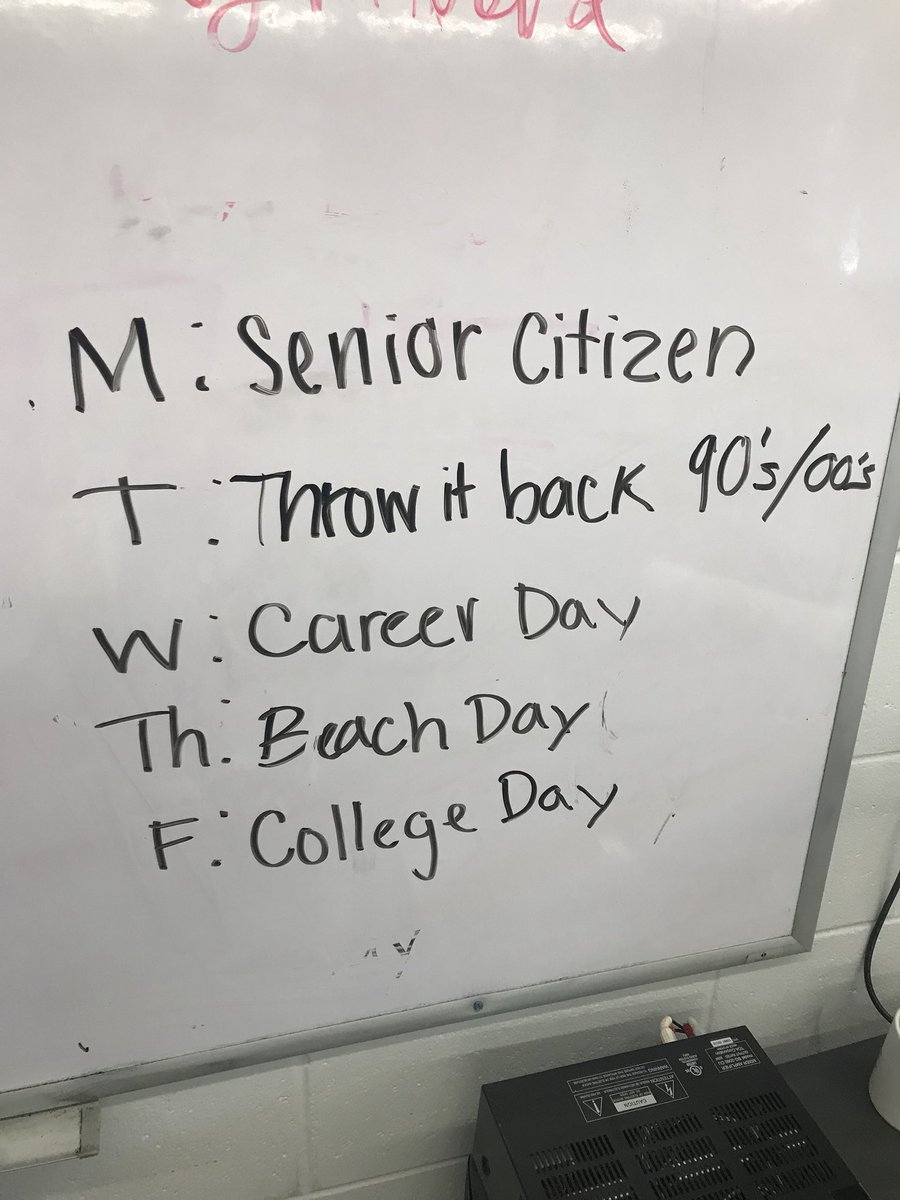 M: Senior Citizen
T: Throw it back 90's/00's
W: Career Day
Th: Beach Day
F: College Day
MIXER AMPLIFIER
TOA Corporation
WARNING
CAUTION